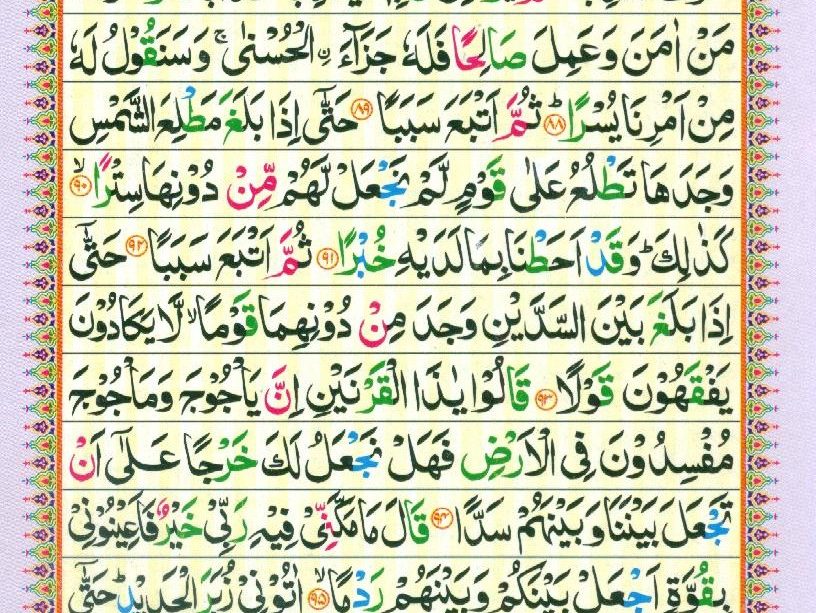 مَنْ اٰمَنَ وَعَمِلَ صَالِحًا فَلَهٗ جَزَآءَ ۨالْحُسْنٰی ۚ وَسَنَقُوْلُ لَهٗ
مِنْ اَمْرِنَا یُسْرًا ؕ ﴿۸۸﴾ ثُمَّ اَتْبَعَ سَبَبًا ﴿۸۹﴾ حَتّٰۤی اِذَا بَلَغَ مَطْلِعَ الشَّمْسِ
وَجَدَهَا تَطْلُعُ عَلٰی قَوْمٍ لَّمْ نَجْعَلْ لَّهُمْ مِّنْ دُوْنِهَا سِتْرًا ۙ ﴿۹۰﴾
كَذٰلِكَ ؕ وَقَدْ اَحَطْنَا بِمَا لَدَیْهِ خُبْرًا ﴿۹۱﴾ ثُمَّ اَتْبَعَ سَبَبًا ﴿۹۲﴾ حَتّٰۤی
اِذَا بَلَغَ بَیْنَ السَّدَّیْنِ وَجَدَ مِنْ دُوْنِهِمَا قَوْمًا ۙ لَّا یَكَادُوْنَ
یَفْقَهُوْنَ قَوْلًا ﴿۹۳﴾ قَالُوْا یٰذَا الْقَرْنَیْنِ اِنَّ یَاْجُوْجَ وَمَاْجُوْجَ
مُفْسِدُوْنَ فِی الْاَرْضِ فَهَلْ نَجْعَلُ لَكَ خَرْجًا عَلٰۤی اَنْ
تَجْعَلَ بَیْنَنَا وَبَیْنَهُمْ سَدًّا ﴿۹۴﴾ قَالَ مَا مَكَّنِّیْ فِیْهِ رَبِّیْ خَیْرٌ فَاَعِیْنُوْنِیْ
بِقُوَّةٍ اَجْعَلْ بَیْنَكُمْ وَبَیْنَهُمْ رَدْمًا ۙ ﴿۹۵﴾ اٰتُوْنِیْ زُبَرَ الْحَدِیْدِ ؕ حَتّٰۤی